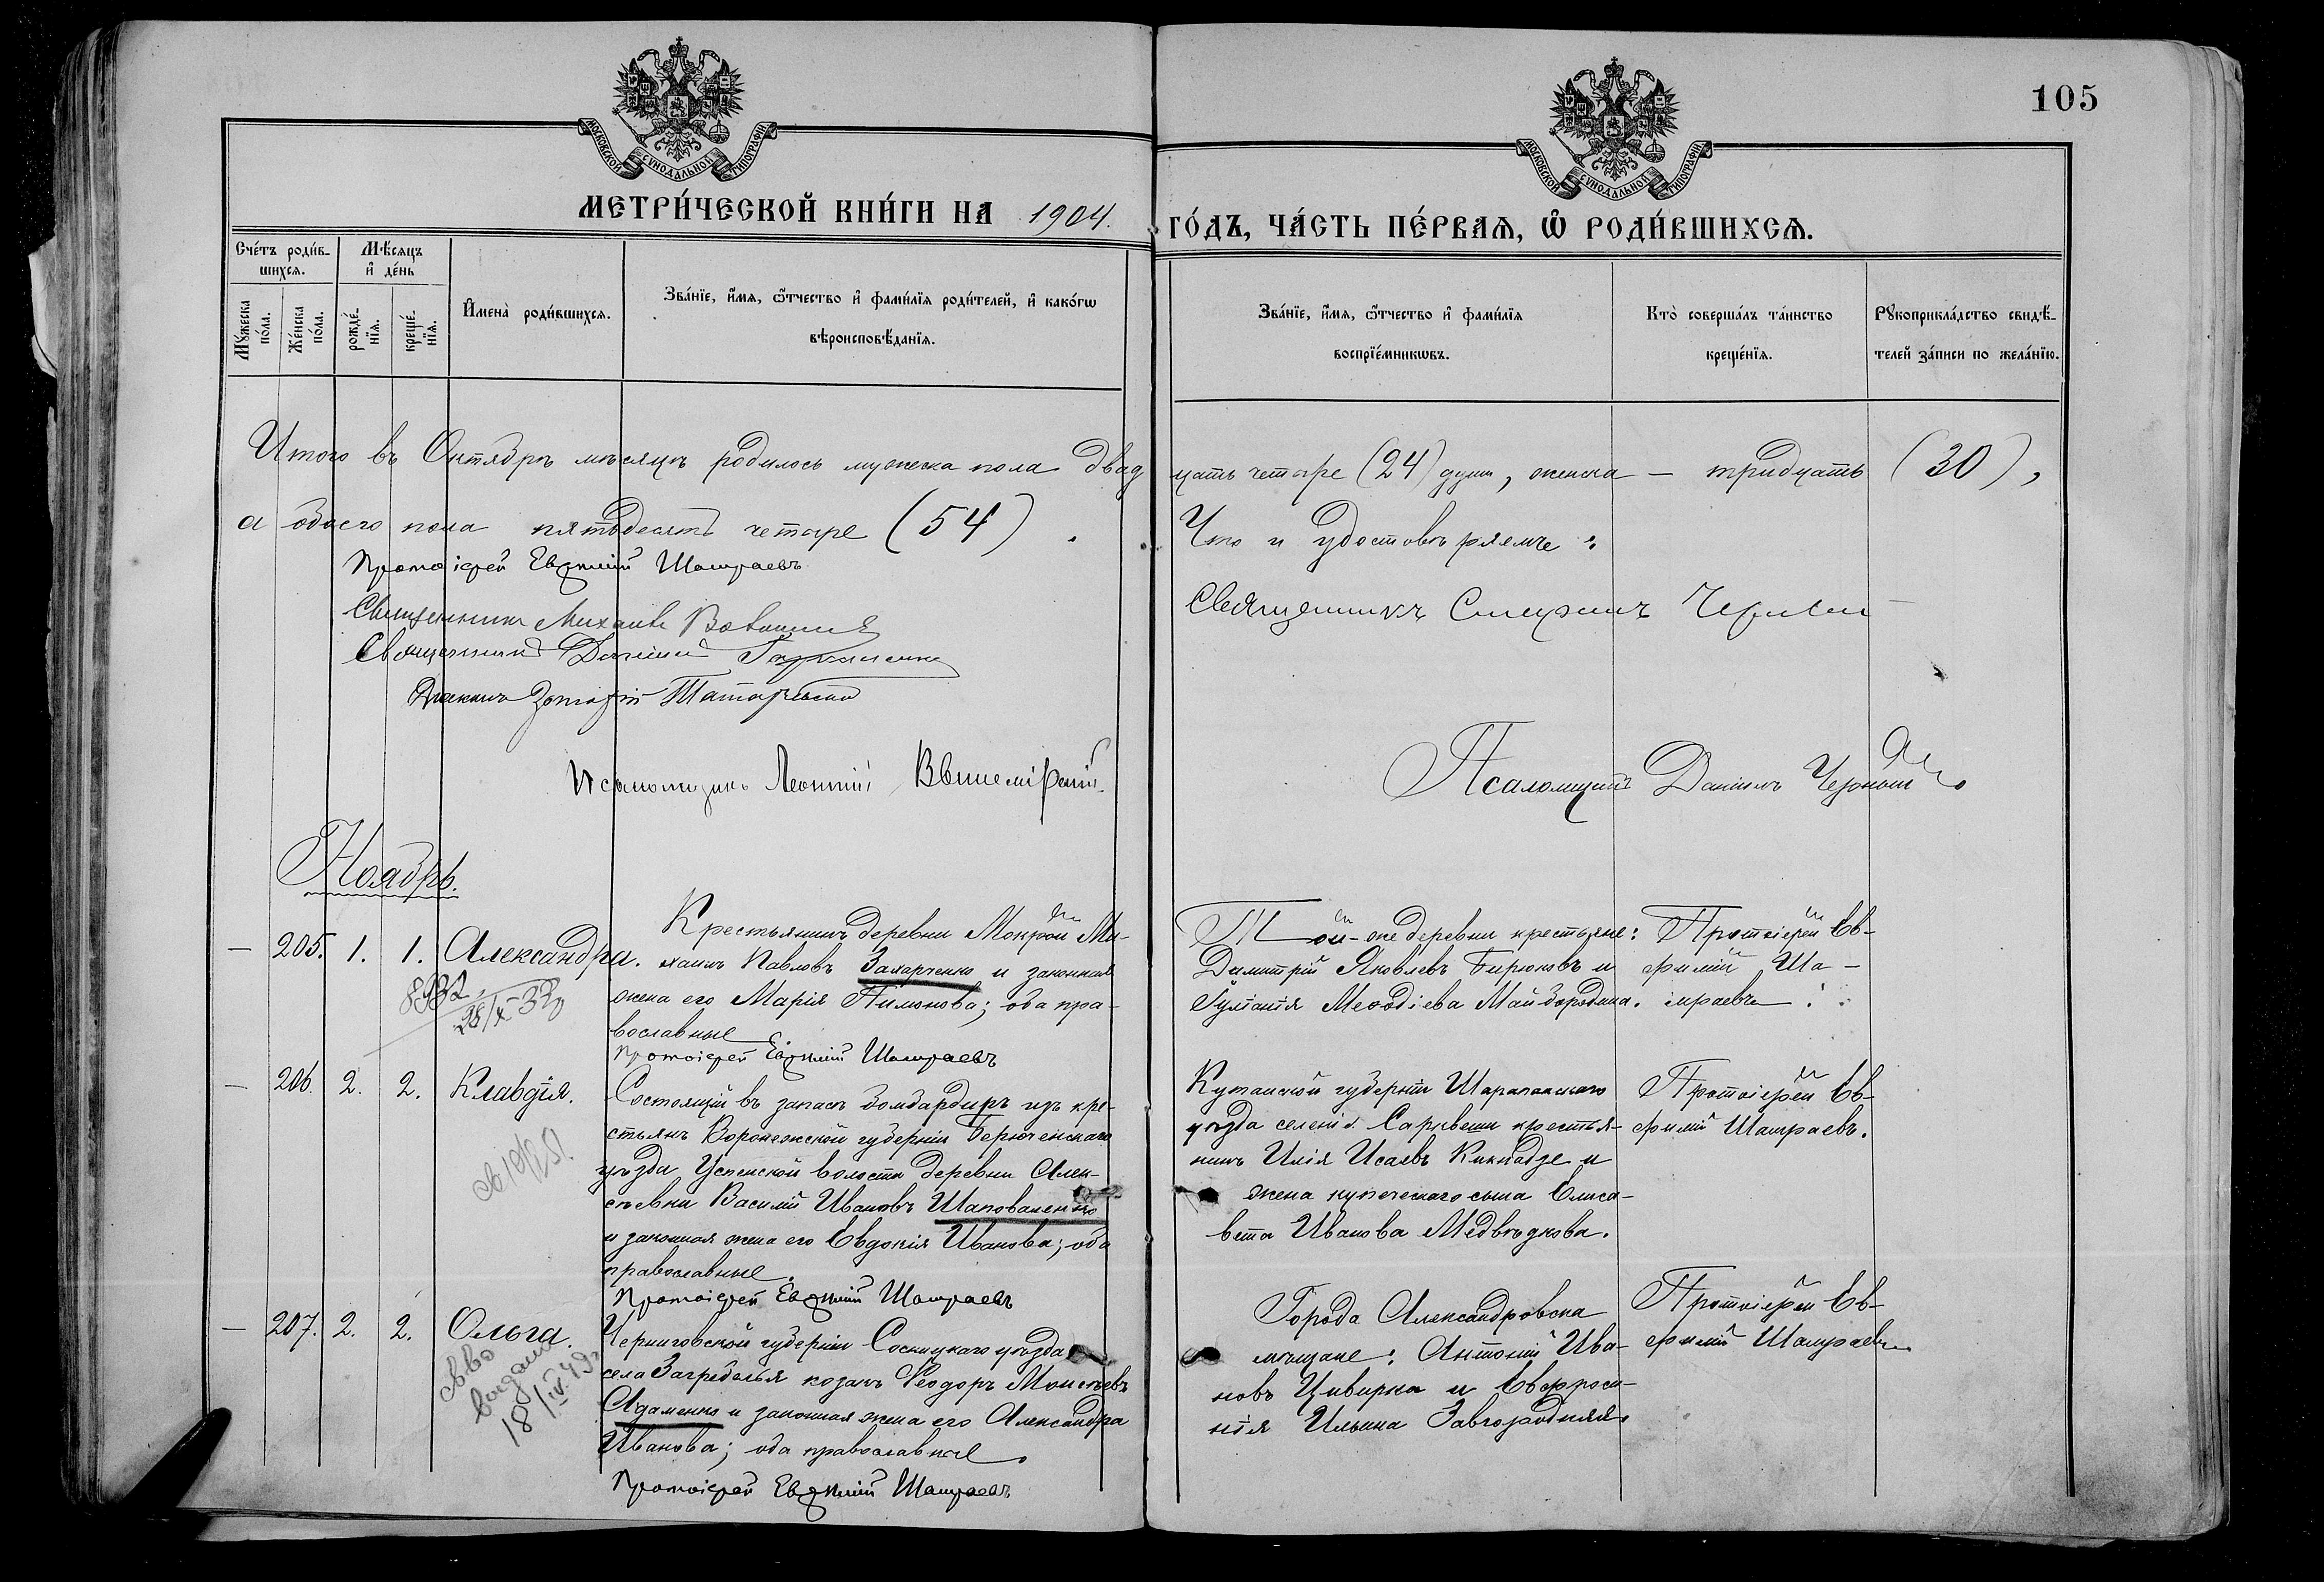 105
МОСКОВСКОЙ СѴНОДАЛЬНОЙ ТИПОГРАФІИ
МОСКОВСКОЙ СѴНОДАЛЬНОЙ ТИПОГРАФІИ
МЕТРИ́ЧЕСКОЙ КНИ́ГИ НА 1904. ГО́ДЪ, ЧА́СТЬ ПЕ́РВАѦ, Ѡ҆ РОДИ́ВШИХСѦ.
Сче́тъ роди́в-
шихсѧ.
Мѣ́сѧцъ
и҆ де́нь
Мꙋ́жеска
по́ла.
Же́нска
по́ла.
рожде́-
нїѧ.
креще́-
нїѧ.
И҆мена̀ роди́вшихсѧ.
Зва́нїе, и҆́мѧ, ѻ҆́тчество и҆ фами́лїѧ роди́телей, и҆ како́гѡ
вѣроисповѣ́данїѧ.
Зва́нїе, и҆́мѧ, ѻ҆́тчество и҆ фами́лїѧ
воспрїе́мникѡвъ.
Кто̀ соверша́лъ та́инство
креще́нїѧ.
Рꙋкоприкла́дство свидѣ́-
телей за́писи по жела́нїю.
Итого въ Октябрѣ мѣсяцѣ родилось мужеска пола двад
цать четыре (24) душъ, женска — тридцать (30),
а обоего пола пятьдесятъ четыре (54).
Что и удостовѣряемъ:
Протоіерей Евѳимій Шамраевъ
Священникъ Михаилъ
Священникъ
Діаконъ Татарскій
Священникъ
Псаломщикъ Леонтій
Псаломщикъ Даніилъ Черный
Ноябрь.
— 205. 1. 1. Александра.
Крестьянинъ деревни Мокрой Ми-
хаилъ Павловъ Захарченко и законная
жена его Марія Пимонова; оба пра-
вославные
Протоіерей Евѳимій Шамраевъ
Той-же деревни крестьяне:
Димитрій Яковлевъ Бирюковъ и
Іуліанія Меѳодіева Майбородина.
Протоіерей Ев-
ѳимій Ша-
мраевъ.
— 206. 2. 2. Клавдія.
Состоящій въ запасѣ бомбардиръ изъ кре-
стьянъ Воронежской губерніи Бирюченскаго
уѣзда Успенской волости деревни Алек-
сѣевки Василій Ивановъ Шаповаленко
и законная жена его Евдокія Иванова; оба
православные.
Протоіерей Евѳимій Шамраевъ
Кутаиской губерніи Шарапанскаго
уѣзда селенія Сарквеши крестья-
нинъ Илія Исаевъ Кикнадзе и
жена купеческаго сына Елиса-
вета Иванова Медвѣдкова.
Протоіерей Ев-
ѳимій Шамраевъ.
— 207. 2. 2. Ольга.
св-во
выдано
18/IV-49г
Черниговской губерніи Сосницкаго уѣзда
села Загребелья козакъ Ѳеодоръ Моисѣевъ
Адаменко и законная жена его Александра
Иванова; оба православные.
Протоіерей Евѳимій Шамраевъ
Города Александровска
мѣщане: Антоній Ива-
новъ Цивирка и Евфроси-
нія Ильина Завгородняя.
Протоіерей Ев-
ѳимій Шамраевъ